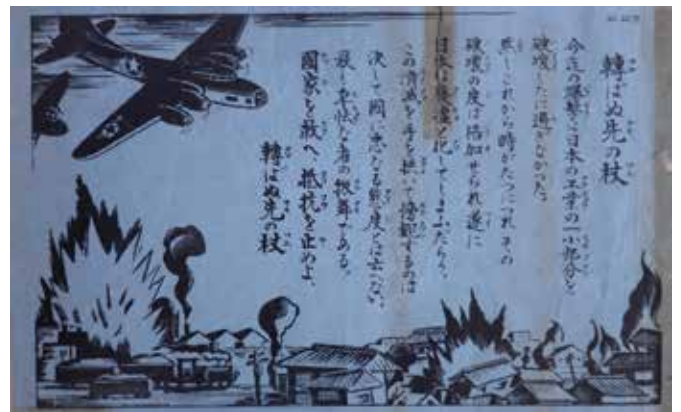 轉ばぬ先の杖
今迄の爆撃で日本の工業の一小部分を
破壊したに過ぎなかった。
然しこれから時がたつにつれその
破壊の度は倍加せられ遂に
日本は廢墟と化してしまふだらう。
この潰滅を手を拱いて傍観するのは
決して國に忠なる態度とは云へない、
最も卑怯な者の振舞である。
國家を救へ、抵抗を止めよ、
轉ばぬ先の杖